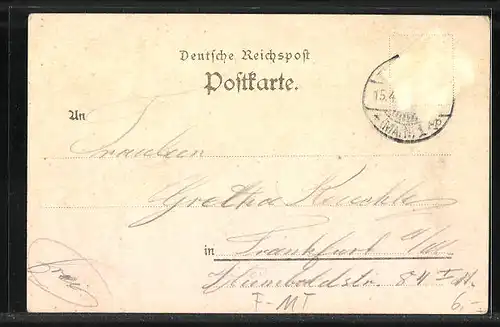 Deutsche Reichspost
Postkarte.
15.4
(MAIN) 1
An
Fräulein
Gretha
in Frankfurt a/M.
Humboldtstr. 84 I
6,-
F-MT